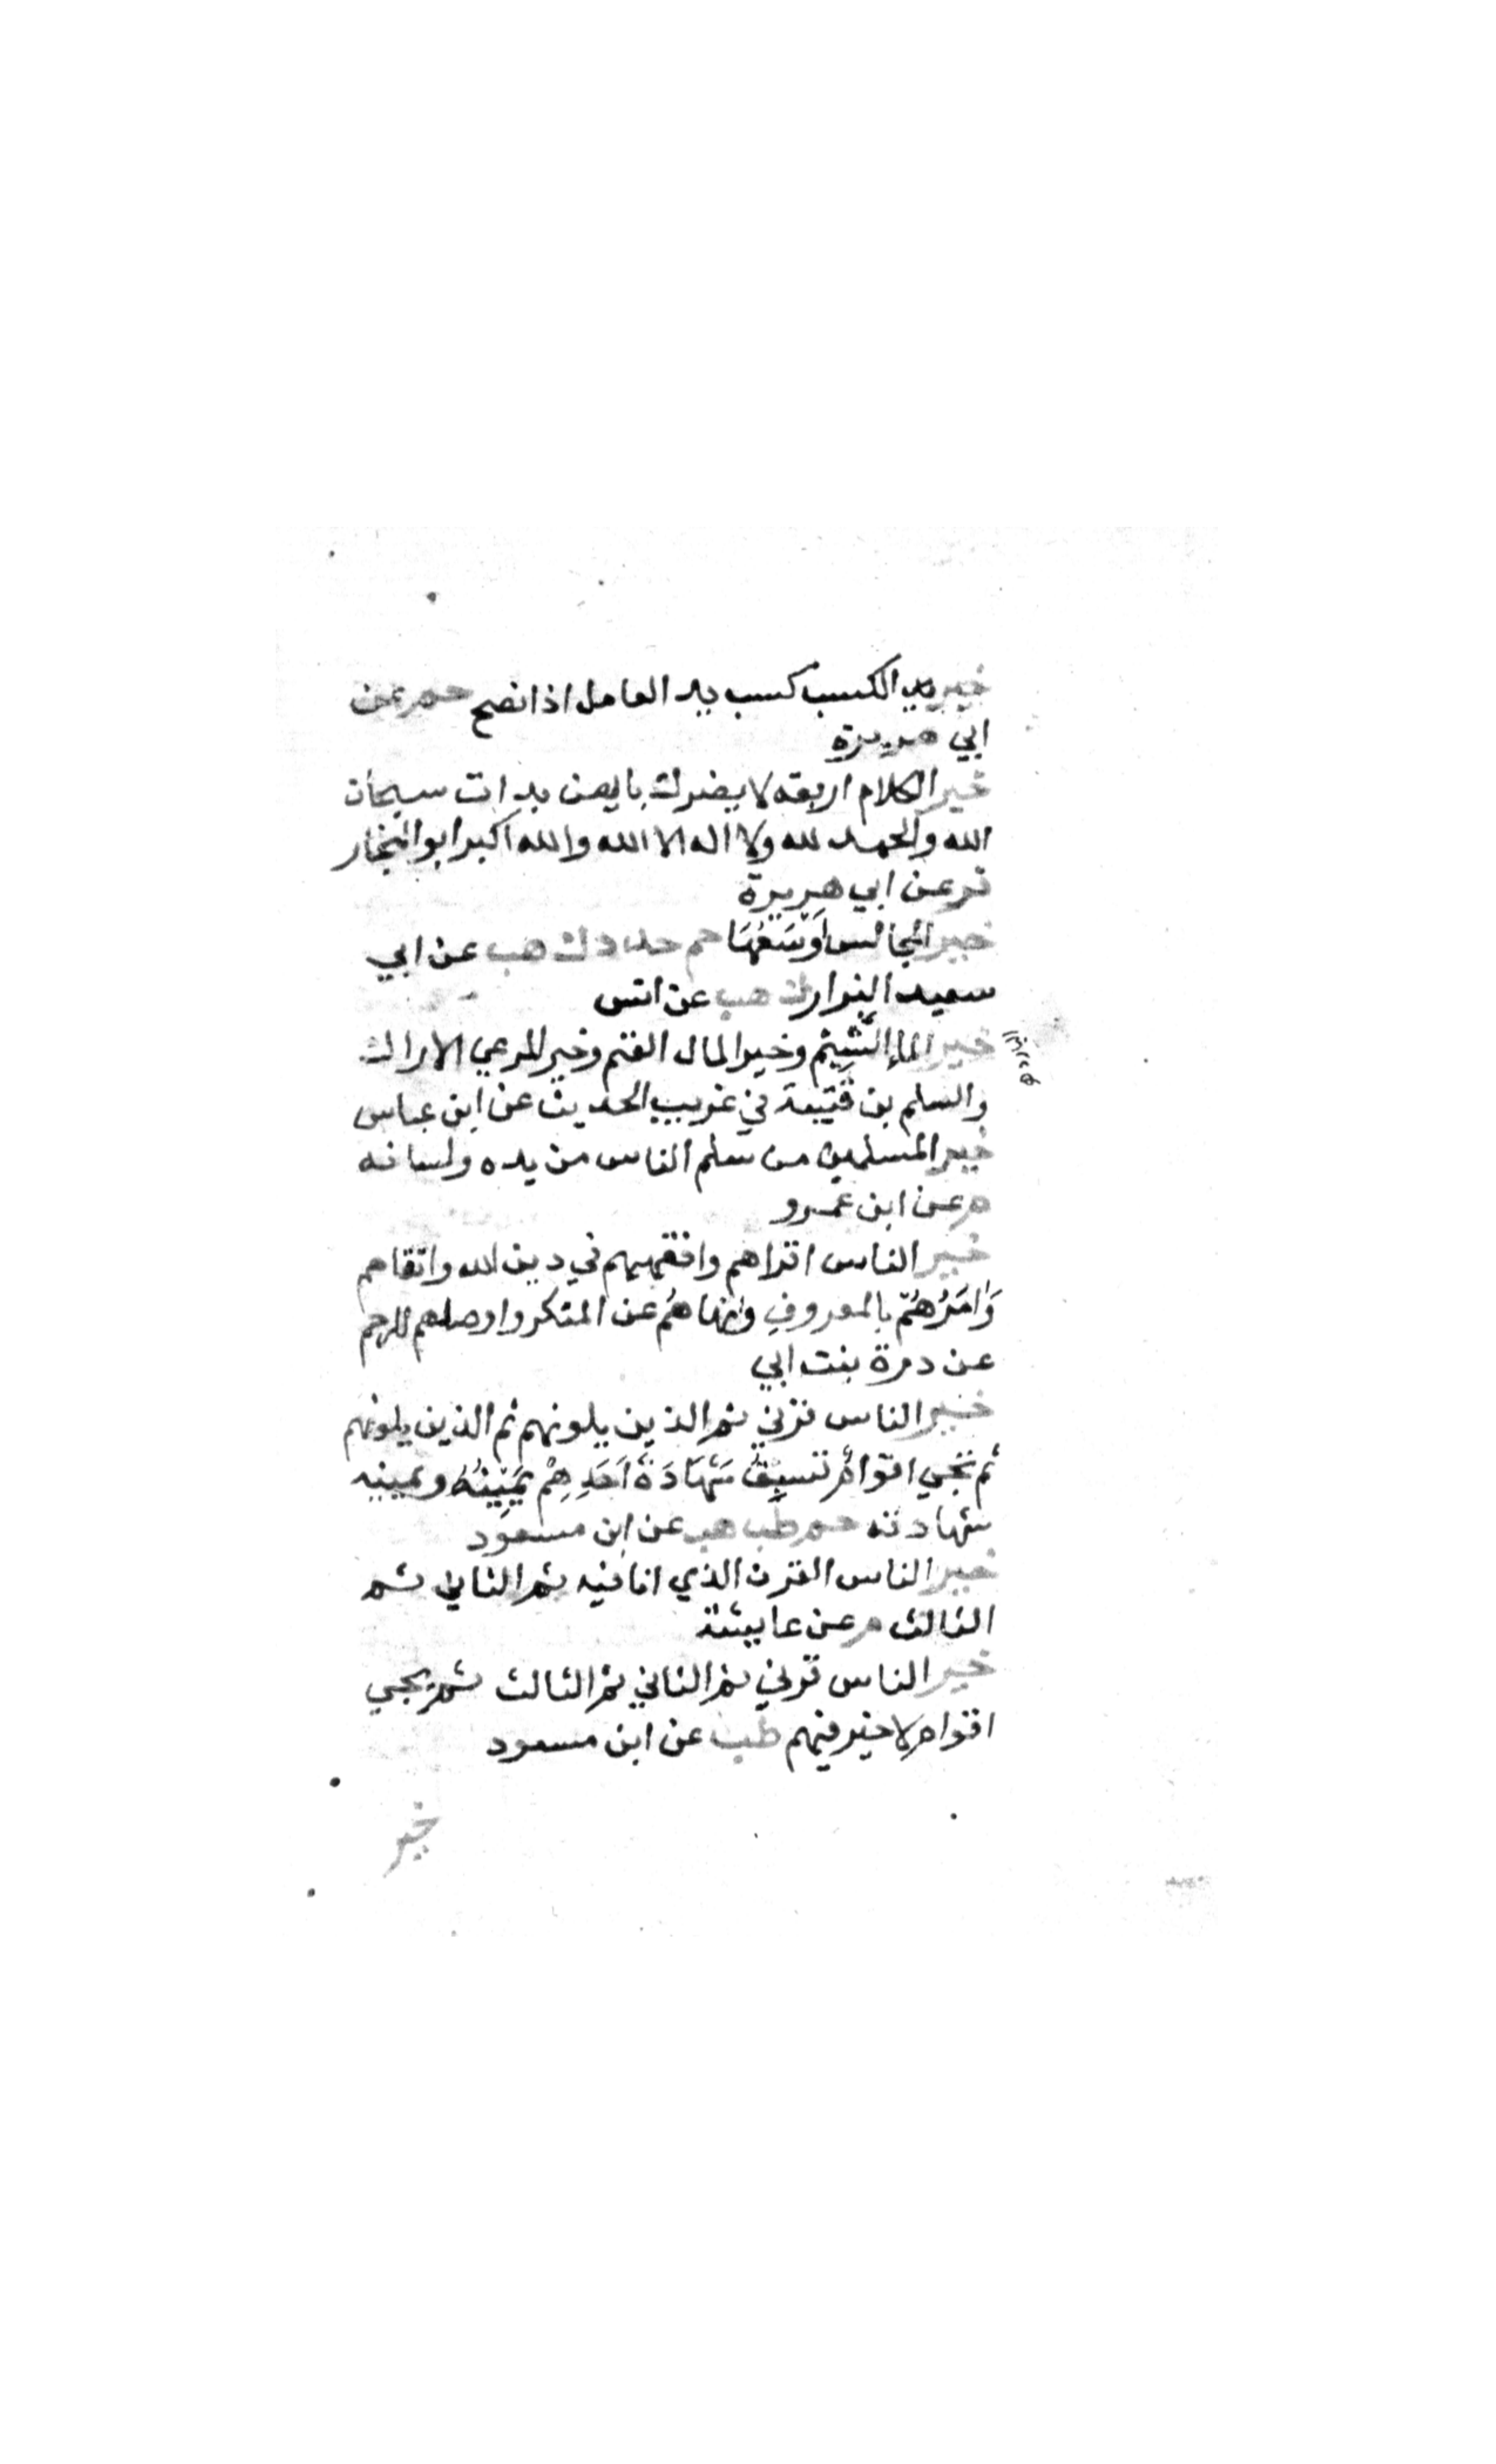 خير الكسب كسب يد العامل اذا نصح حم عن
ابي هريرة
خير الكلام اربعة لا يضرك بايهن بدات سبحان
الله والحمد لله ولا اله الا الله والله اكبر ابو النجار
تر عن ابي هريرة
خير المجالس اَوْسَعُهَا حم خد د ك هب عن ابي
سعيد البزار ك هب عن انس
خير الماء الشَّبِمُ وخير المال الغنم وخير المرعي الاراك
والسلم بن قُتَيبة في غريب الحديث عن ابن عباس
خير المسلمين من سلم الناس من يده ولسانه
م عن ابن عمرو
خير الناس اقراهم وافقههم في دين الله واتقاهم
وَامَرُهُمْ بالمعروفِ وانهاهُم عن المنكر واوصلهم للرحم
عن درة بنت ابي
خير الناس قرني ثم الذين يلونهم ثم الذين يلونهم
ثم تجي اقوامٌ تسبِقُ شَهَادَةُ اَحَدِهِمْ يَمِيْنُهُ ويمينه
شهادته حم طب هب عن ابن مسعود
خير الناس القرن الذي انا فيه ثم الثاني ثم
الثالث م عن عايشة
خير الناس قرني ثم الثاني ثم الثالث ثم يجي
اقوام لا خير فيهم طب عن ابن مسعود
خير